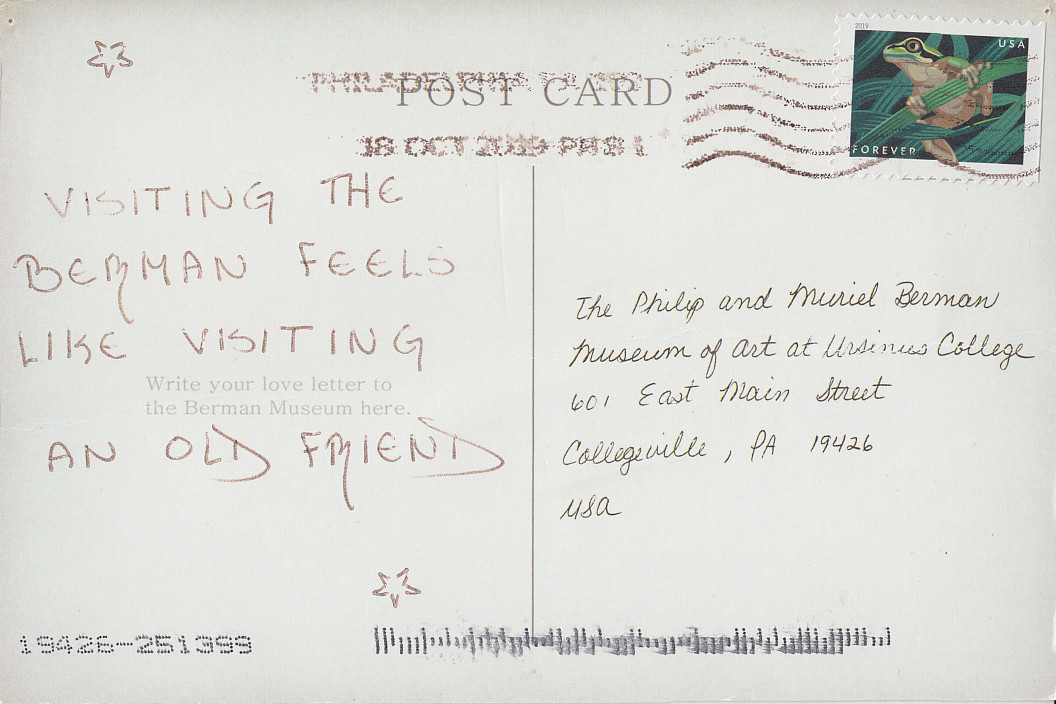 2019
USA
FOREVER
PHILADELPHIA
POST CARD
18 OCT 2019 PM
VISITING THE
BERMAN FEELS
LIKE VISITING
Write your love letter to
the Berman Museum here.
AN OLD FRIEND
The Philip and Muriel Berman
Museum of Art at Ursinus College
601 East Main Street
Collegeville, PA 19426
USA
19426-251399